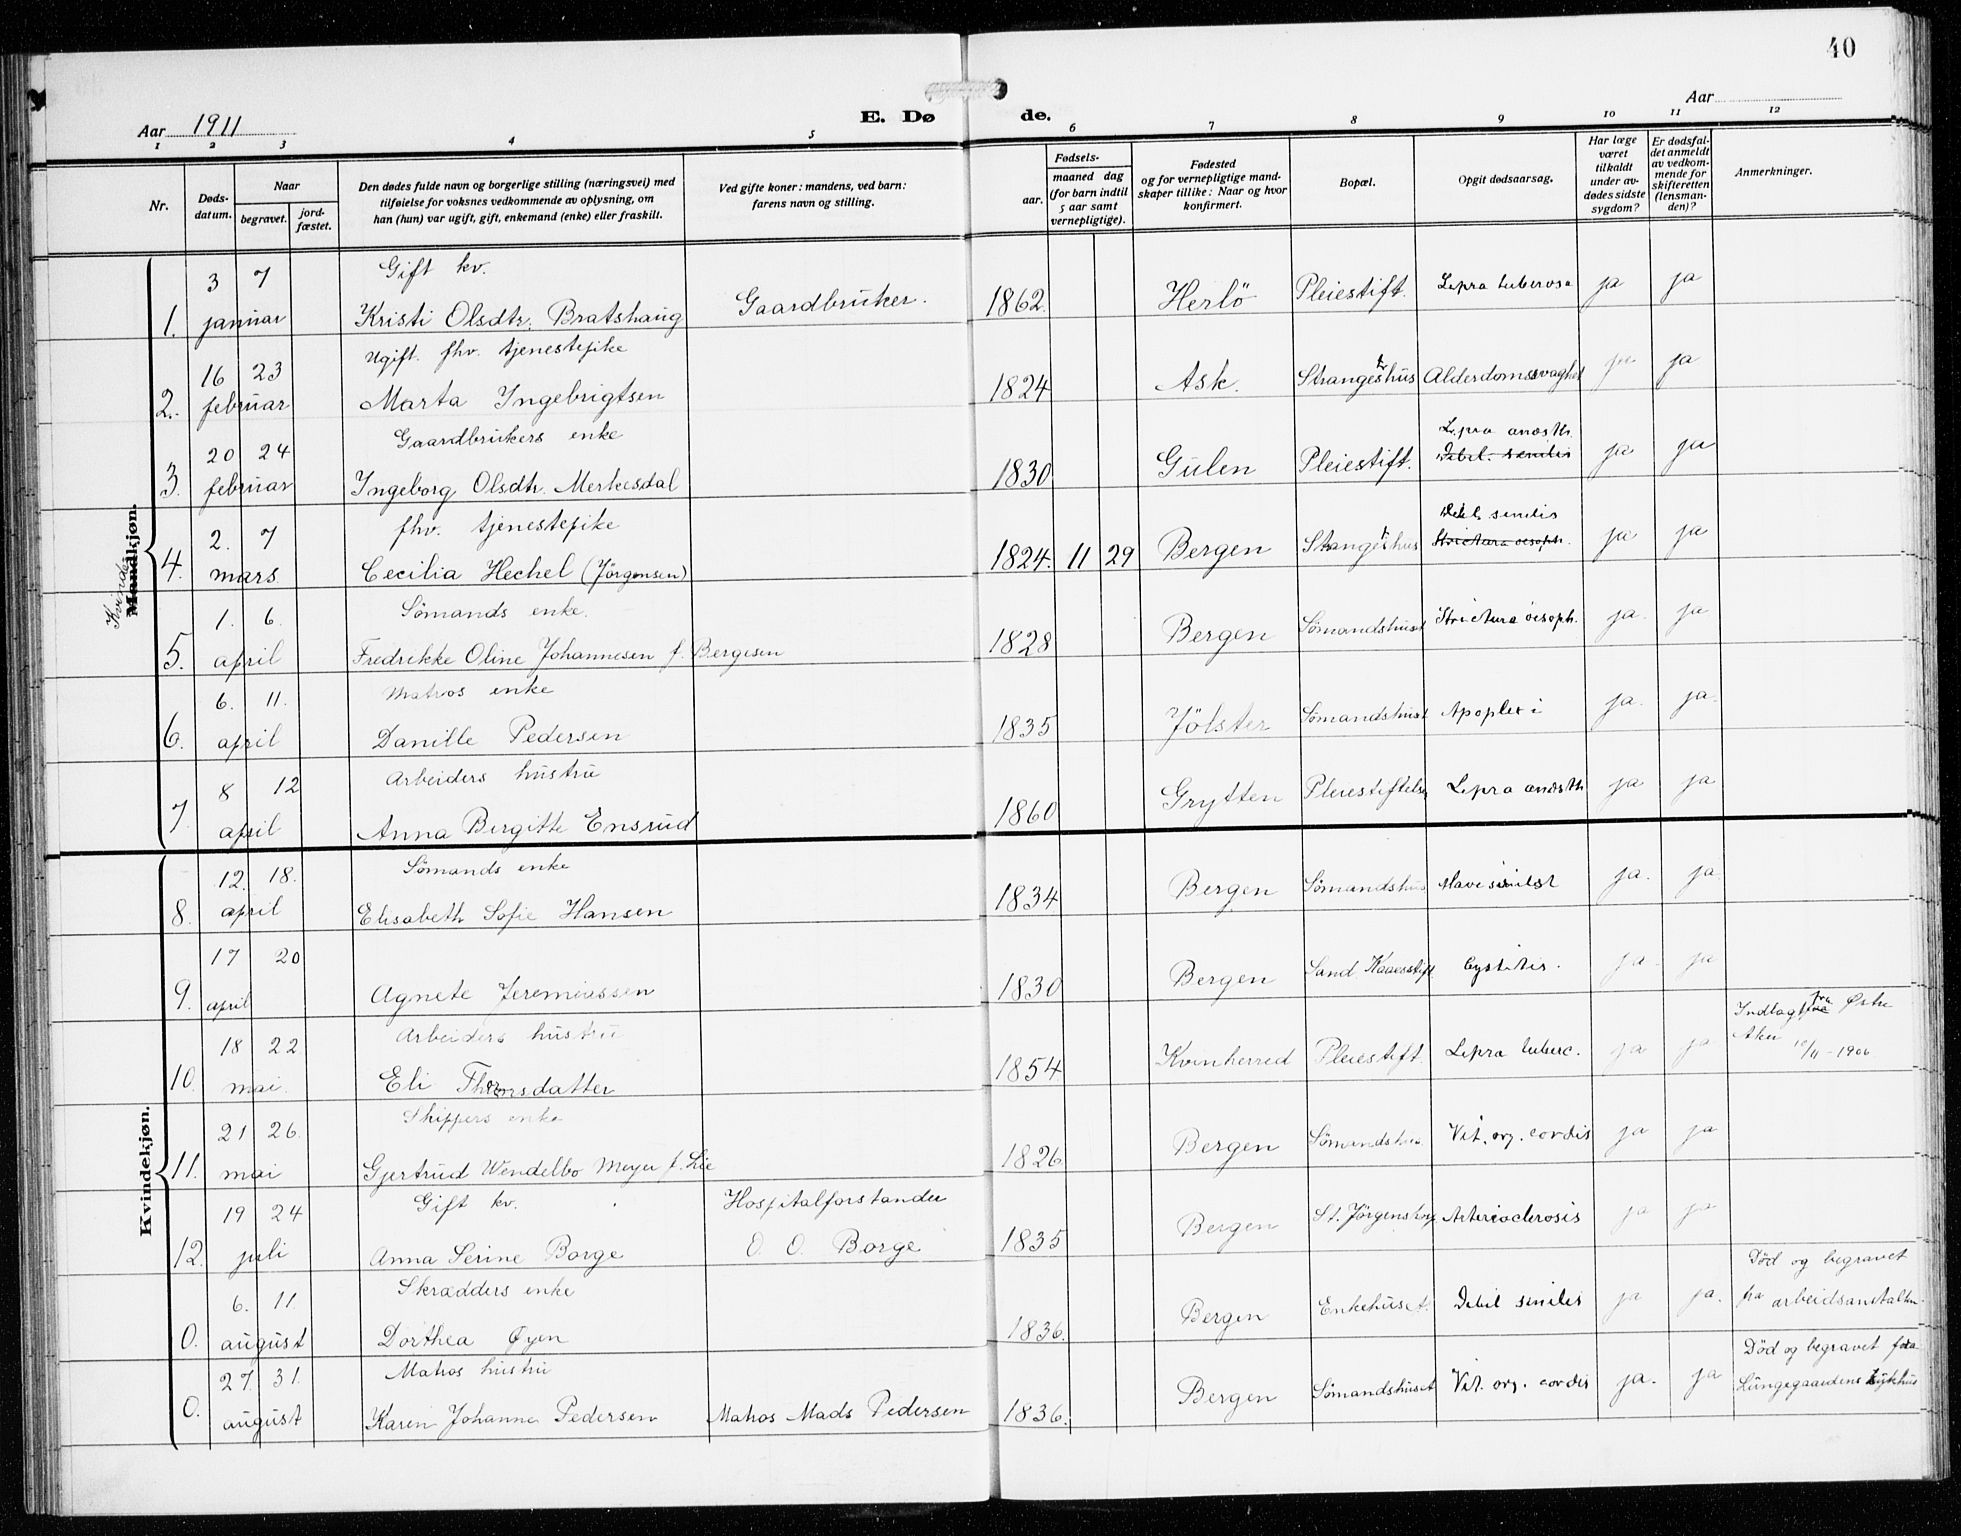 40
Aar 1911
E. Dø de.
Aar
1 2 3 4 5 6 7 8 9 10 11 12
Nr.
Døds-
datum.
Naar
begravet.
jord-
fæstet.
Den dødes fulde navn og borgerlige stilling (næringsvei) med
tilføielse for voksnes vedkommende av oplysning, om
han (hun) var ugift, gift, enkemand (enke) eller fraskilt.
Ved gifte koner: mandens, ved barn:
farens navn og stilling.
Fødsels-
aar.
maaned dag
(for barn indtil
5 aar samt
vernepligtige).
Fødested
og for vernepligtige mand-
skaper tillike: Naar og hvor
konfirmert.
Bopæl.
Opgit dødsaarsag.
Har læge
været
tilkaldt
under av-
dødes sidste
sygdom?
Er dødsfal-
det anmeldt
av vedkom-
mende for
skifteretten
(lensman-
den)?
Anmerkninger.
Mandkjøn.
Kvinde
3 7 Gift kv.
1. januar Kristi Olsdtr. Bratshaug Gaardbruker. 1862 Herlö Pleiestift. Lepra tuberosa ja ja
16 23 Ugift. fhv. tjenestepike
2. februar Marta Ingebrigtsen 1824 Ask. Strangeshus Alderdomssvaghet ja ja
20 24 Gaardbrukers enke Lepra anæsth.
3. februar Ingeborg Olsdtr. Merkesdal 1830 Gulen Pleiestift. Debil. senilis ja ja
2. 7 fhv. tjenestepike Debil. senilis
4. mars Cecilia Hechel (Jörgensen) 1824. 11 29 Bergen Stangeshus Strictura oesoph. ja ja
1. 6. Sömands enke.
5. april Fredrikke Oline Johannesen f. Bergesen 1828 Bergen Sömandshuset Strictura oesoph. ja. ja
6. 11. Matros enke
6. april Danille Pedersen 1835 Jölster Sömandshuset Apoplexi ja. ja.
8 12 Arbeiders hustru
7. april Anna Birgitte Ensrud 1860 Grytten Pleiestiftelse Lepra anæsth ja ja
Kvindekjøn.
12. 18. Sömands enke
8. april Elisabeth Sofie Hansen 1834 Bergen Sömandshus ja. ja.
17 20
9. april Agnete Jeremiassen 1830 Bergen Sand Kaaesstift Cystitis. ja. ja
18 22 Arbeiders hustru Indlagt fra Østre
10. mai. Eli Thomsdatter 1854 Kvinherred Pleiestift. Lepra tuberc. ja ja Aker 10/11-1906
21 26. Skippers enke
11. mai Gjertrud Wendelbo Meyer f. Lie 1826 Bergen Sömandshus. Vit. org. cordis ja ja
19 24 Gift kv. Hospitalforstander
12. juli Anna Serine Borge O. O. Borge 1835 Bergen St. Jörgenshosp Arteriosclerosis ja ja
6. 11. Skrædders enke Död og begravet
0. august Dorthea Øyen 1836. Bergen Enkehuset. Debil senilis ja ja. fra arbeidsanstalten.
27. 31. Matros hustru Död og begravet fra
0. august Karen Johanne Pedersen Matros Mads Pedersen 1836. Bergen Sömandshuset Vit. org. cordis ja. ja Lungegaardens Sykhus